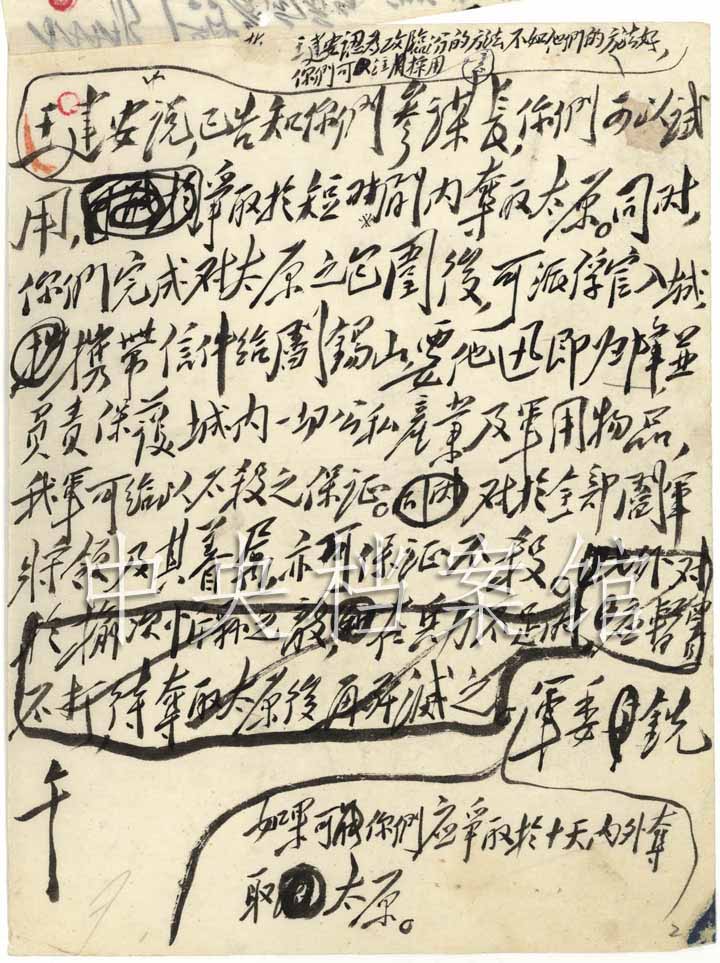 王建安認為攻臨汾的方法不如他們的方法好，
你們可注月採用
王建安說，已告知你們參謀長，你們可以試
用，爭取於短時間内奪取太原。同时，
你們完成对太原之包圍後，可派俘官入城，
攜帶信件给閻錫山要他迅即归降並
負責保護城内一切公私產業及軍用物品，
我軍可给以不殺之保证。同时对於全部閻軍
將領及其眷屬亦可保证不殺。此外对
於榆次 之敵，在兵力不足时，暫
不打，待奪取太原後再歼滅之。
軍委 銑
午
如果可能你們应爭取於十天内外奪
取太原。
2
中央档案馆